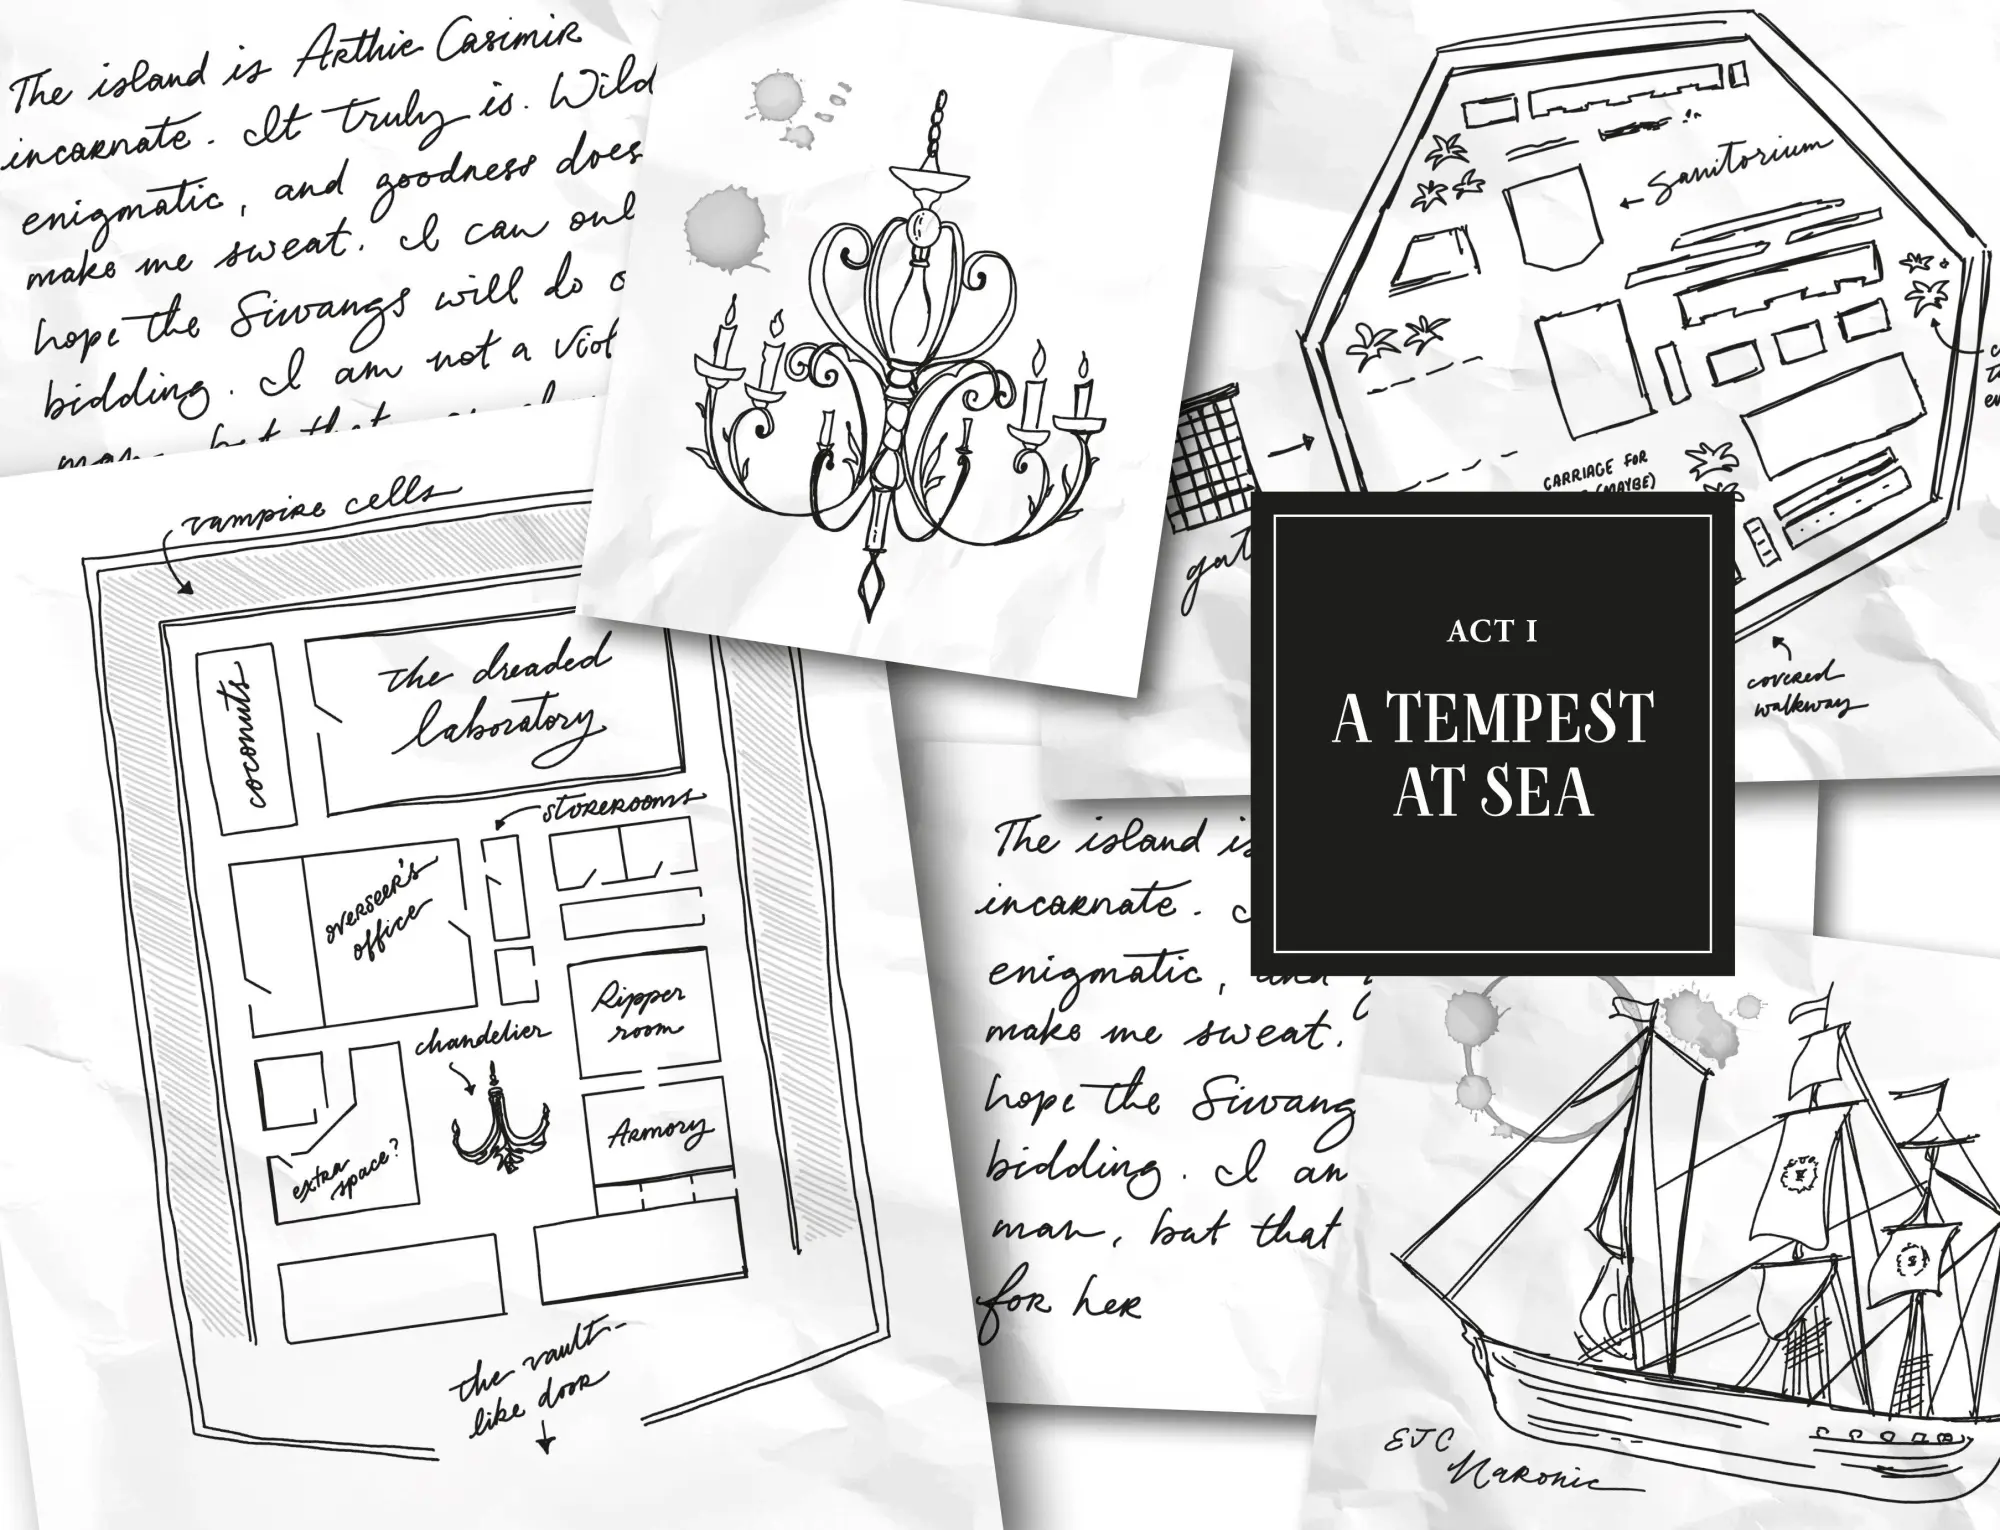 The island is Arthie Casimir
incarnate. It truly is. Wild
enigmatic, and goodness does
make me sweat. I can onl
hope the Siwangs will do
bidding. I am not a
man, but that
vampire cells
coconuts
the dreaded
laboratory
storerooms
overseer's
office
Ripper
room
chandelier
Armory
extra
space?
the vault-
like door
sanitorium
CARRIAGE FOR
(MAYBE)
gat
covered
walkway
ACT I
A TEMPEST
AT SEA
The island is
incarnate.
enigmatic, and
make me sweat.
hope the Siwang
bidding. I am
man, but that
for her
EJC
Naronic